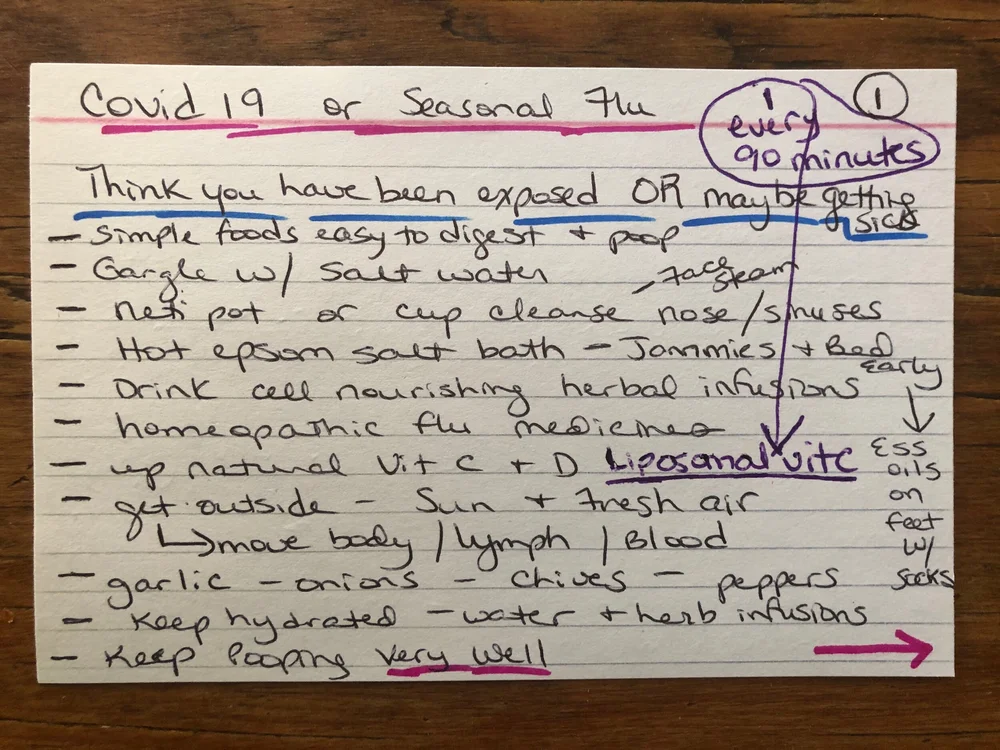 Covid 19 or Seasonal Flu
1
1
every
90 minutes
Think you have been exposed OR maybe getting
sick
- Simple foods easy to digest + poop
- Gargle w/ salt water
- Face Steam
- Neti pot or cup cleanse nose/sinuses
- Hot epsom salt bath - Jammies + Bed
Early
- Drink cell nourishing herbal infusions
- homeopathic flu medicines
- up natural Vit C + D Liposomal vitc
Ess
oils
on
feet
w/
socks
- get outside - Sun + Fresh air
move body / lymph / Blood
- garlic - onions - chives - peppers
- Keep hydrated - water + herb infusions
- Keep Pooping very well